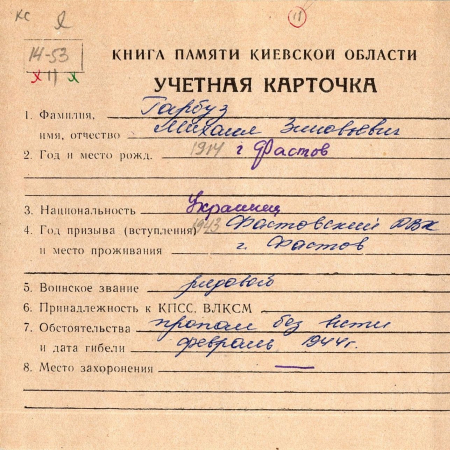 КС Я 11
14-53
х 11 х
КНИГА ПАМЯТИ КИЕВСКОЙ ОБЛАСТИ
УЧЕТНАЯ КАРТОЧКА
1. Фамилия, Гарбуз
имя, отчество Михаил Зиновьевич
2. Год и место рожд. 1914 г Фастов
3. Национальность Украинец
4. Год призыва (вступления) 1943 Фастовский РВК
и место проживания г. Фастов
5. Воинское звание рядовой
6. Принадлежность к КПСС, ВЛКСМ
7. Обстоятельства пропал без вести
и дата гибели февраль 1944г.
8. Место захоронения —